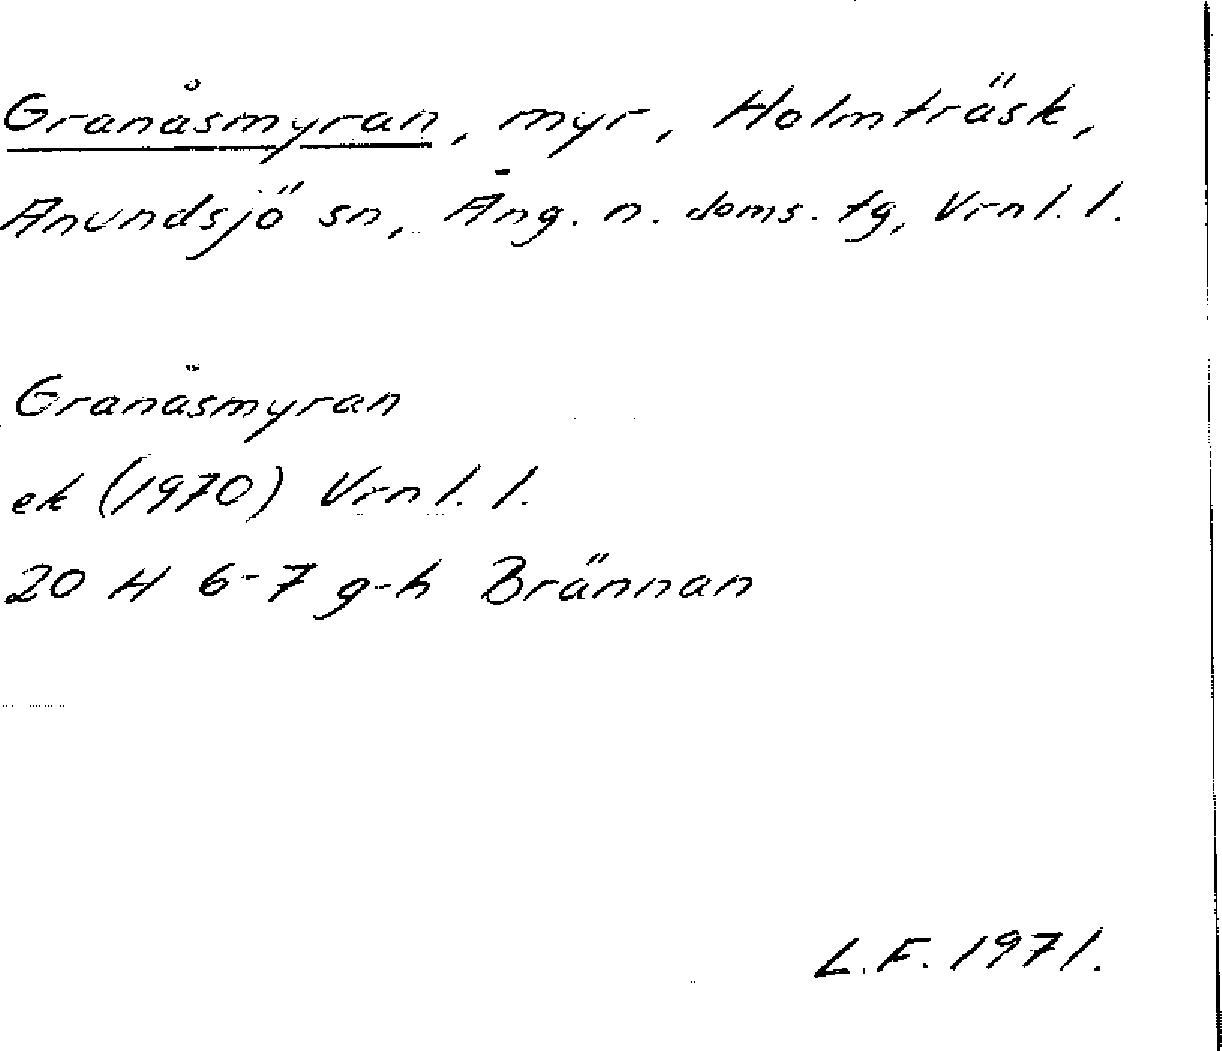 Granåsmyran, myr, Holmträsk,
Anundsjö sn, Äng. n. doms. tg, Vrnl. l.
Granåsmyran
ek (1970) Vrnl. l.
20 H 6-7 g-h Brännan
L.F. 1971.